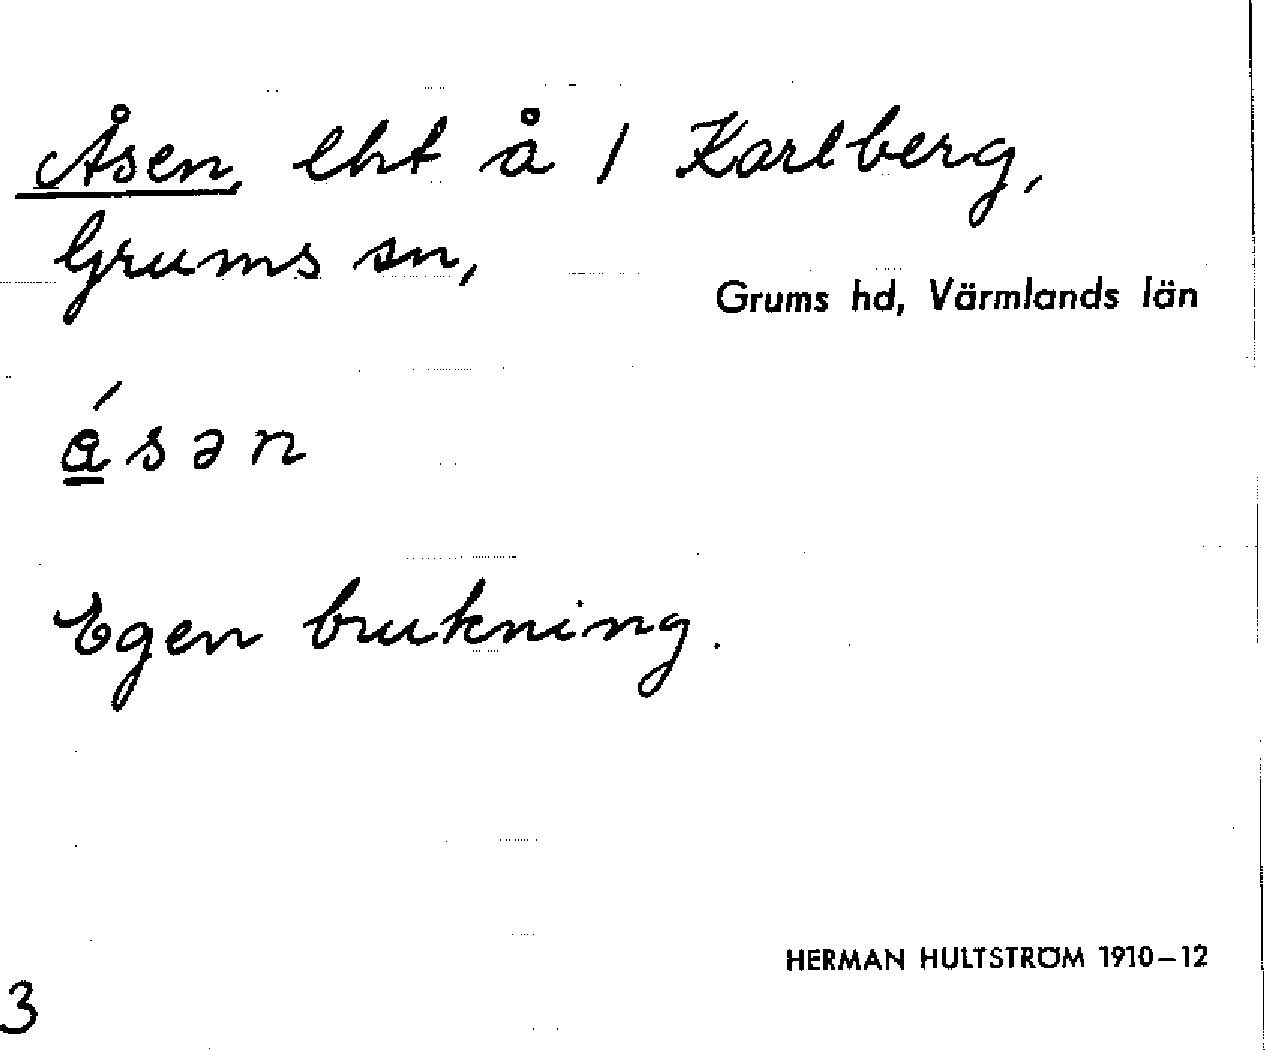 Åsen, lht å 1 Karlberg,
Grums sn,
Grums hd, Värmlands län
ǻsən
Egen brukning.
HERMAN HULTSTRÖM 1910–12
3